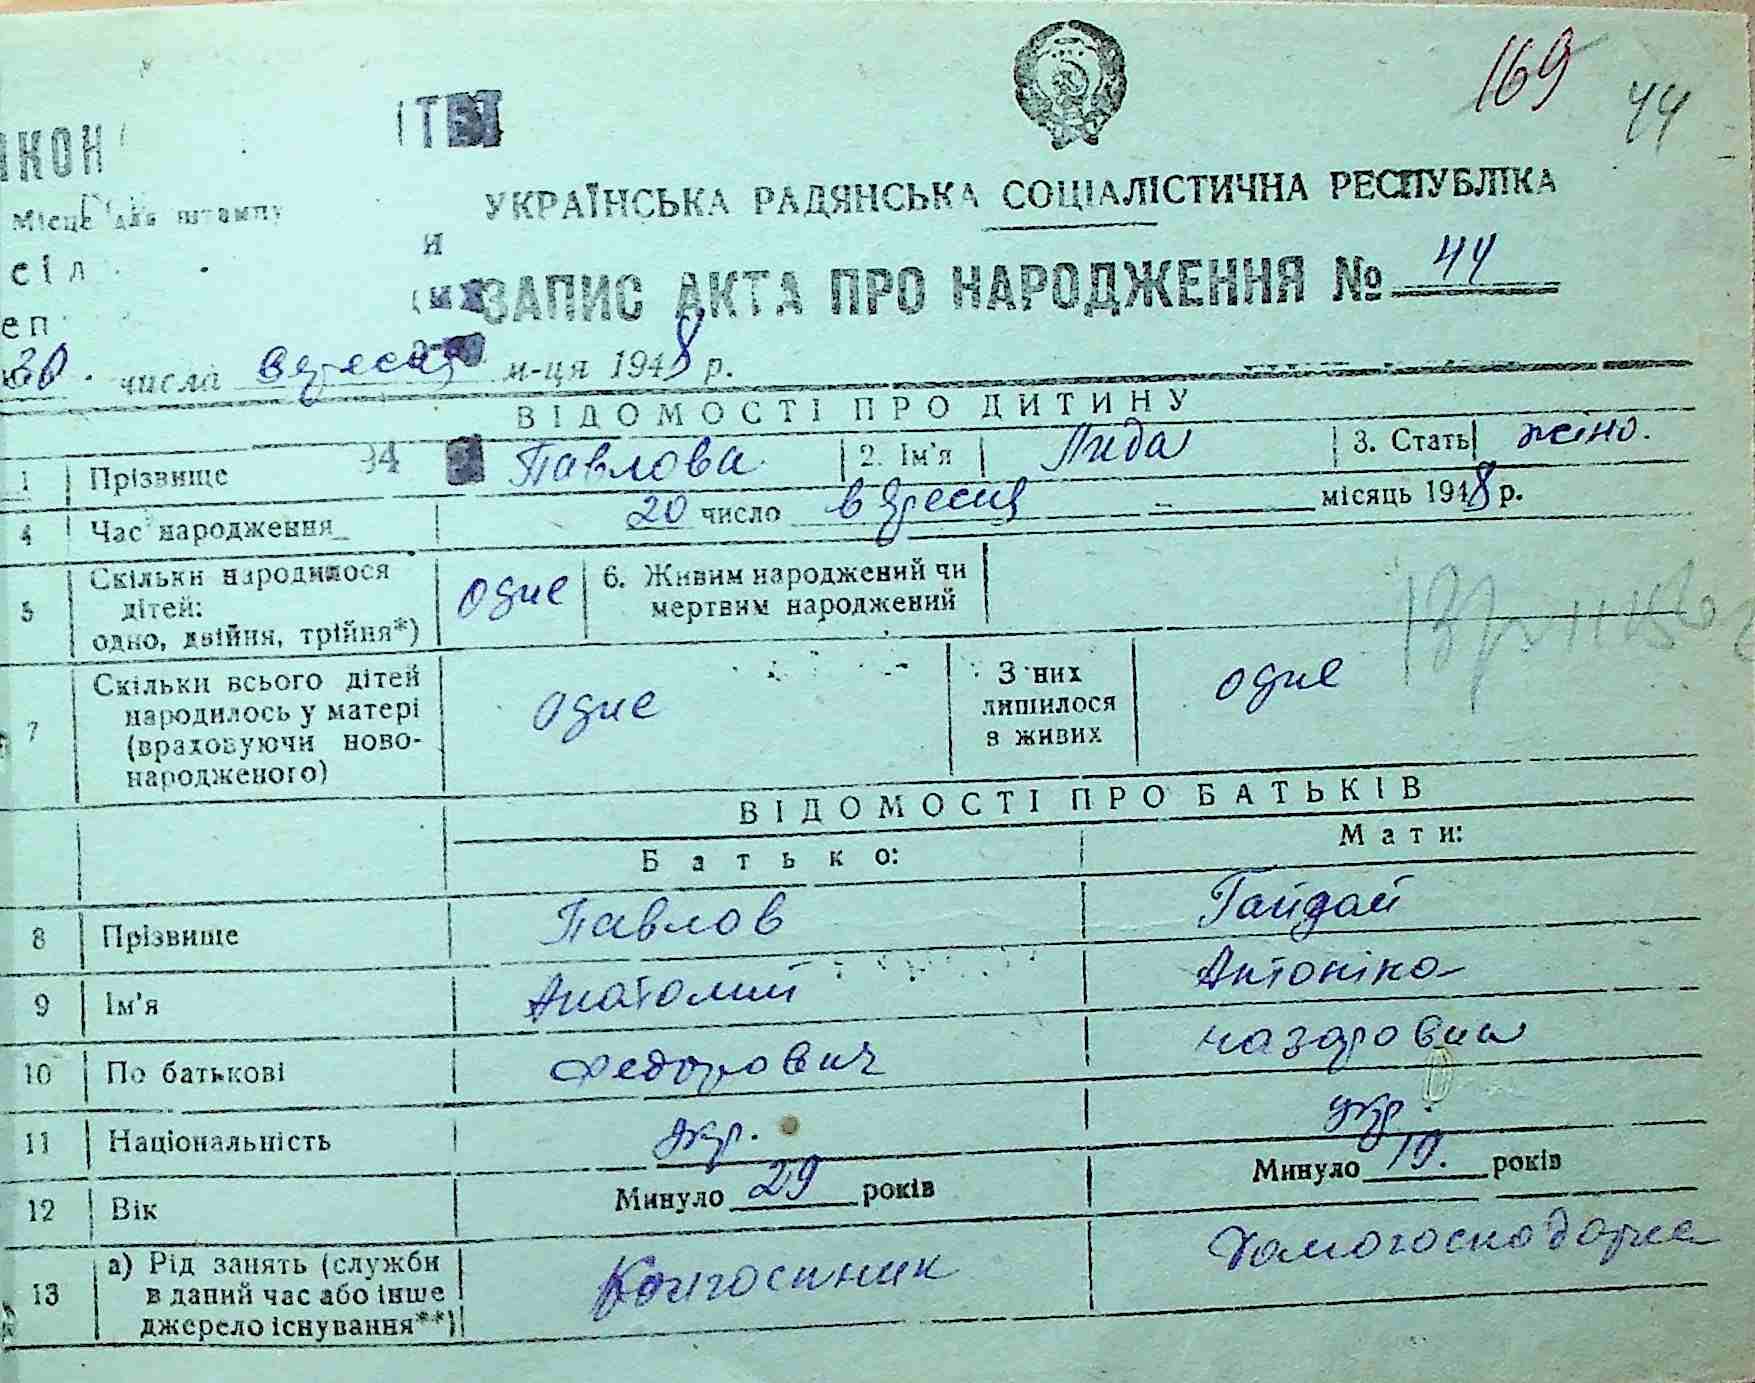 169
44
ІТЕТ
ИКОН
Місце для штампу
УКРАЇНСЬКА РАДЯНСЬКА СОЦІАЛІСТИЧНА РЕСПУБЛІКА
сіл
ЗАПИС АКТА ПРО НАРОДЖЕННЯ № 44
еп
30 числа вересня м-ця 1948 р.
ВІДОМОСТІ ПРО ДИТИНУ
1 Прізвище 94 Павлова 2. Ім'я Лида 3. Стать жіно.
4 Час народження 20 число вересня місяць 1948 р.
5 Скільки народилося дітей: одно, двійня, трійня*) одне 6. Живим народжений чи мертвим народжений
7 Скільки всього дітей народилось у матері (враховуючи ново-народженого) одне З них лишилося в живих одне
ВІДОМОСТІ ПРО БАТЬКІВ
Батько: Мати:
8 Прізвище Павлов Гайдай
9 Ім'я Анатолий Антоніна
10 По батькові Федорович Назаровна
11 Національність укр. укр.
12 Вік Минуло 29 років Минуло 19. років
13 а) Рід занять (служби в даний час або інше джерело існування**) Колгоспник Домогосподарка